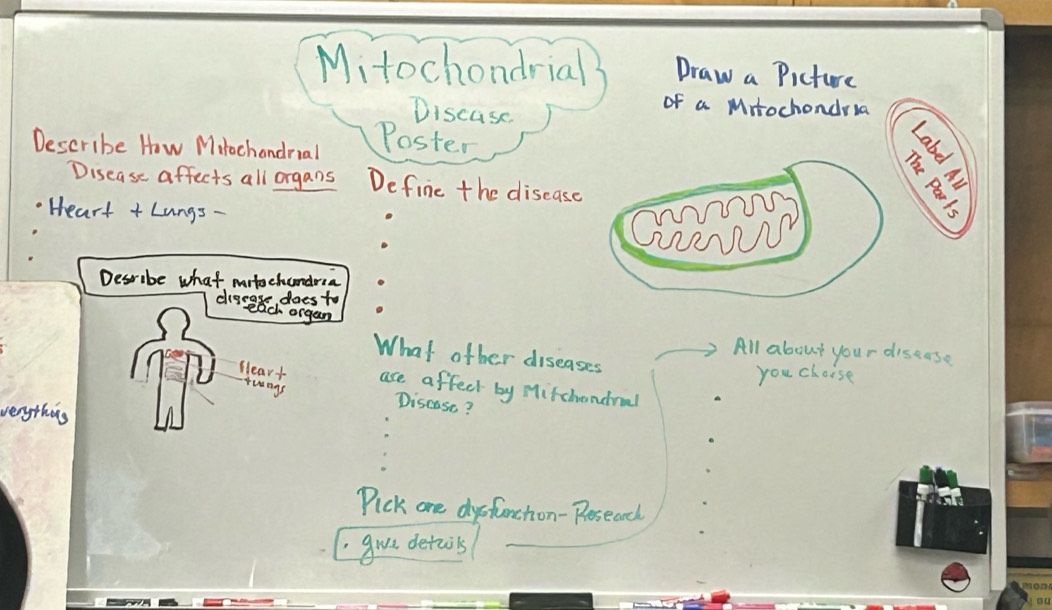 Mitochondrial
Disease
Poster
Draw a Picture
of a Mitochondria
Label All
The Parts
Describe How Mitochondrial
Disease affects all organs
• Heart + Lungs -
Define the disease
Desribe what mitochondria
disease does to
each organ
Heart
+ Lungs
What other diseases
are affect by Mitchondrial
Disease?
All about your disease
you choose
Pick one dysfunction - Research
• give details
verything